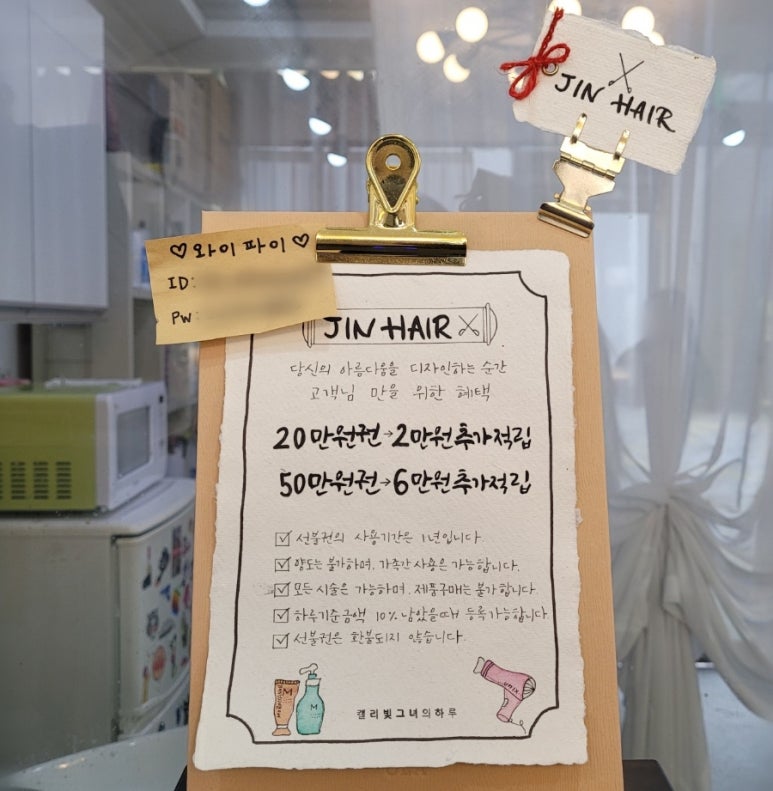 JIN HAIR
♡와이파이♡
ID:
PW:
JIN HAIR
당신의 아름다움을 디자인하는 순간
고객님 만을 위한 혜택
20만원권→2만원추가적립
50만원권→6만원추가적립
☑ 선불권의 사용기간은 1년입니다.
☑ 양도는 불가하며, 가족간 사용은 가능합니다.
☑ 모든 시술은 가능하며, 제품구매는 불가합니다.
☑ 하루기준금액 10% 남았을때 등록가능합니다.
☑ 선불권은 환불되지 않습니다.
M
M
UNIX
캘리빛그녀의하루